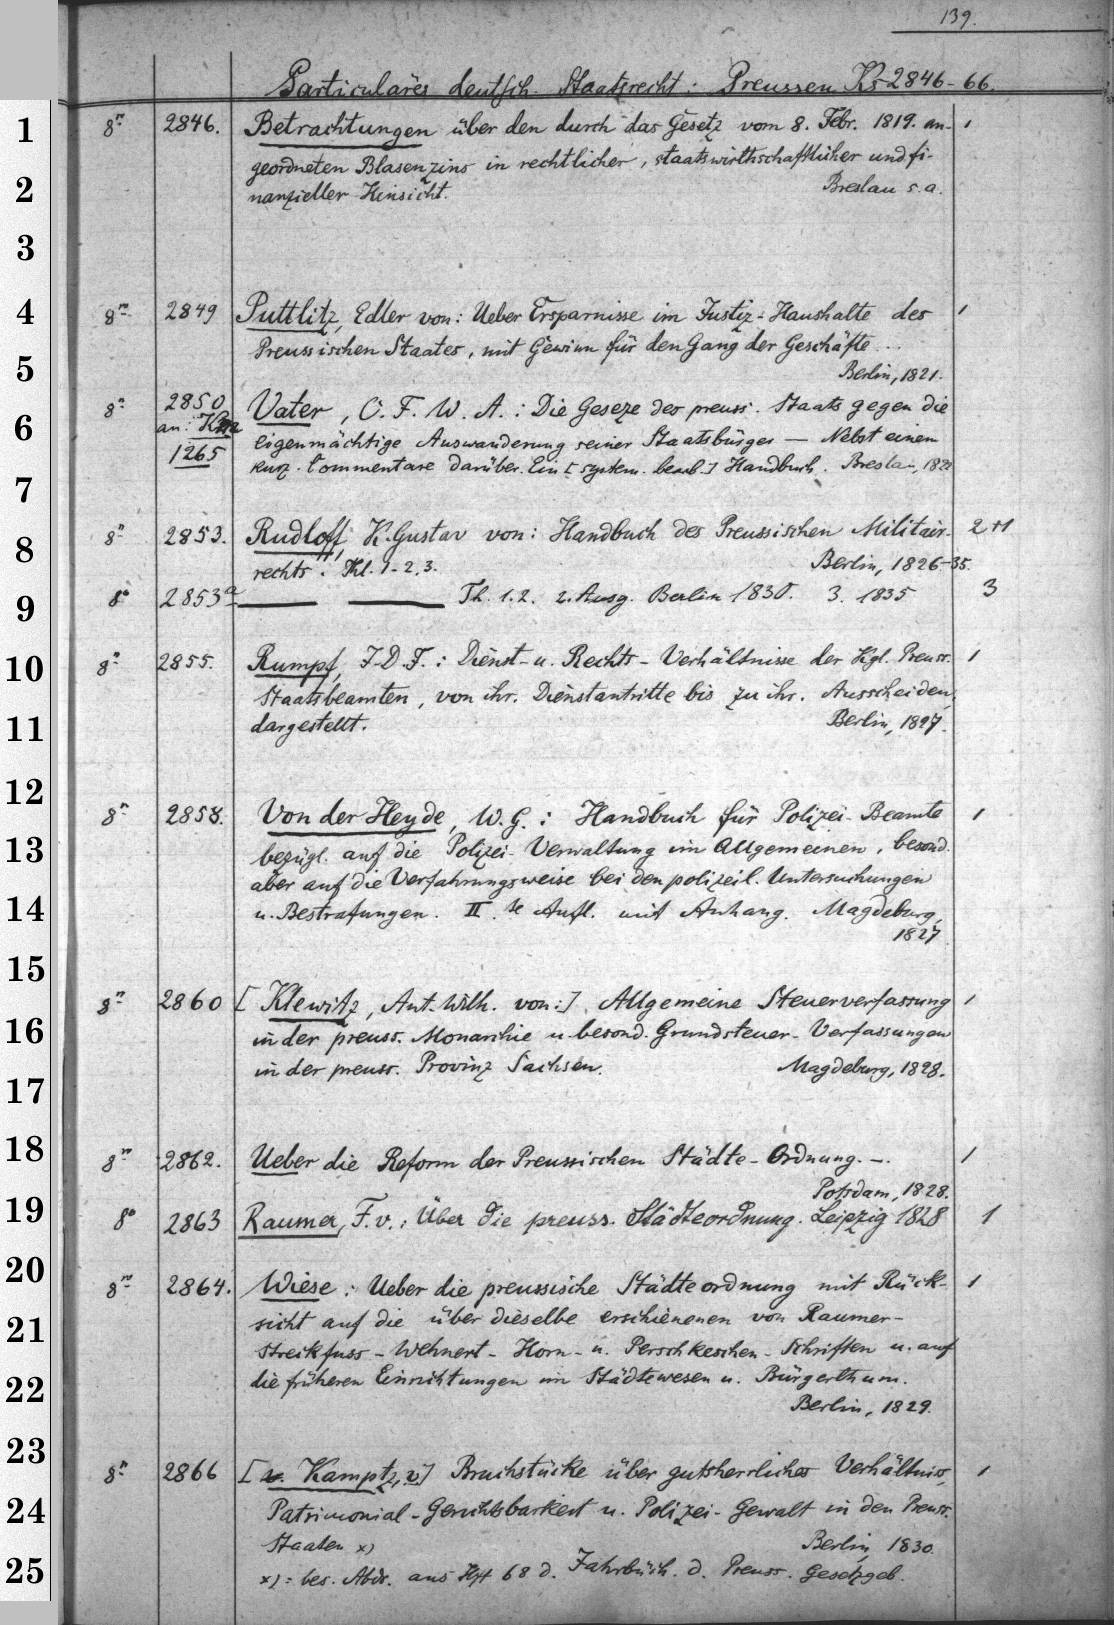 139.
Particuläres deutsch. Staatsrecht: Preussen Ks 2846-66.
1 8º 2846. Betrachtungen über den durch das Gesetz vom 8. Febr. 1819. an- 1
geordneten Blasenzins in rechtlicher, staatswirthschaftlicher und fi-
2 nanzieller Hinsicht. Breslau s.a.
3
4 8º 2849 Puttlitz, Edler von: Ueber Ersparnisse im Justiz-Haushalte des 1
Preussischen Staates, mit Gewinn für den Gang der Geschäfte ...
5 Berlin, 1821.
8º 2850 Vater, O. F. W. A.: Die Geseze des preuss. Staats gegen die
6 an: eigenmächtige Auswanderung seiner Staatsbürger — Nebst einem
1265 kurz. Commentare darüber. Ein [system. bearb.] Handbuch. Breslau,
7
8 8º 2853. Rudloff, K. Gustav von: Handbuch des Preussischen Militair- 2+1
rechts. Thl. 1-2, 3. Berlin, 1826-35.
9 8º 2853a — — Th. 1.2. 2. Ausg. Berlin 1835. 3. 1835 3
10 8º 2855. Rumpf, J.D.F.: Dienst- u. Rechts-Verhältnisse der Kgl. Preuss. 1
Staatsbeamten, von ihr. Dienstantritte bis zu ihr. Ausscheiden,
11 dargestellt. Berlin, 1827.
12
8º 2858. Von der Heyde, W. G.: Handbuch für Polizei-Beamte 1
13 bezügl. auf die Polizei-Verwaltung im Allgemeinen, besond.
aber auf die Verfahrungsweise bei den polizeil. Untersuchungen
14 u. Bestrafungen. II.te Aufl. mit Anhang. Magdeburg,
1827
15
8º 2860 [Klewitz, Ant. Wilh. von:] Allgemeine Steuerverfassung 1
16 in der preuss. Monarchie u. besond. Grundsteuer-Verfassungen
in der preuss. Provinz Sachsen. Magdeburg, 1828.
17
18 8º 2862. Ueber die Reform der Preussischen Städte-Ordnung. —. 1
Potsdam, 1828.
19 8º 2863 Raumer, F. v.: Über die preuss. Städteordnung. Leipzig 1828 1
20 8º 2864. Wiese: Ueber die preussische Städteordnung mit Rück- 1
21 sicht auf die über dieselbe erschienenen von Raumer-
Streckfuss-Wehnert-Horn- u. Perschkeschen-Schriften u. auf
22 die früheren Einrichtungen im Städtewesen u. Bürgerthum.
Berlin, 1829.
23
8º 2866 [v. Kamptz, v] Bruchstücke über gutsherrliches Verhältniss, 1
24 Patrimonial-Gerichtsbarkeit u. Polizei-Gewalt in den Preuss.
Staaten x) Berlin, 1830.
25 x) = bes. Abdr. aus Hft 68 d. Jahrbüch. d. Preuss. Gesetzgeb.